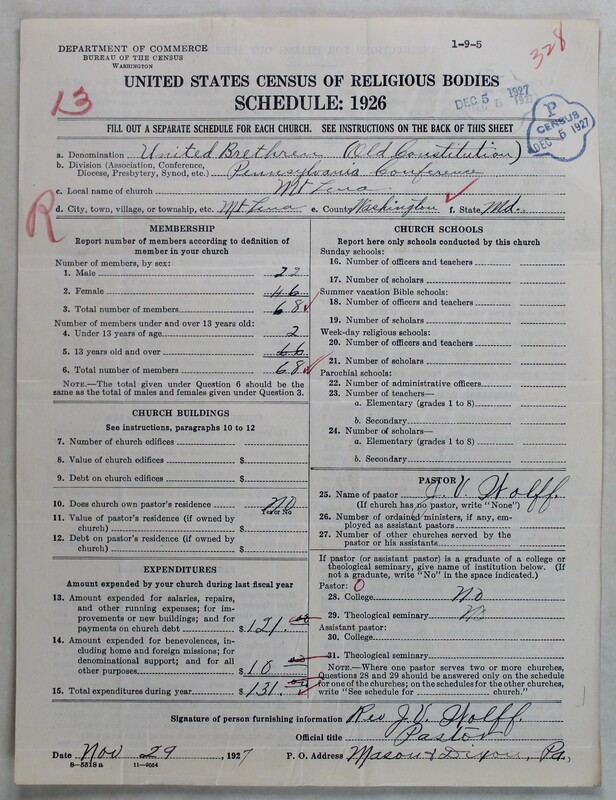 DEPARTMENT OF COMMERCE
BUREAU OF THE CENSUS
WASHINGTON
1-9-5
328
13
UNITED STATES CENSUS OF RELIGIOUS BODIES
SCHEDULE: 1926
DEC 5 1927
P
CENSUS
DEC 5 1927
FILL OUT A SEPARATE SCHEDULE FOR EACH CHURCH. SEE INSTRUCTIONS ON THE BACK OF THIS SHEET
a. Denomination United Brethren (Old Constitution)
b. Division (Association, Conference, Diocese, Presbytery, Synod, etc.) Pennsylvania Conference
c. Local name of church Mt Lena
d. City, town, village, or township, etc. Mt Lena e. County Washington f. State Md.
R
MEMBERSHIP
Report number of members according to definition of
member in your church
Number of members, by sex:
1. Male 22
2. Female 46
3. Total number of members 68
Number of members under and over 13 years old:
4. Under 13 years of age 2
5. 13 years old and over 66
6. Total number of members 68
NOTE.—The total given under Question 6 should be
same as the total of males and females given under Question 3.
CHURCH BUILDINGS
See instructions, paragraphs 10 to 12
7. Number of church edifices
8. Value of church edifices $
9. Debt on church edifices $
10. Does church own pastor's residence No
Yes or No
11. Value of pastor's residence (if owned by
church) $
12. Debt on pastor's residence (if owned by
church) $
EXPENDITURES
Amount expended by your church during last fiscal year
13. Amount expended for salaries, repairs,
and other running expenses; for im-
provements or new buildings; and for
payments on church debt $ 121.00
14. Amount expended for benevolences, in-
cluding home and foreign missions; for
denominational support; and for all
other purposes 10 00
15. Total expenditures during year $ 131.00
CHURCH SCHOOLS
Report here only schools conducted by this church
Sunday schools:
16. Number of officers and teachers
17. Number of scholars
Summer vacation Bible schools:
18. Number of officers and teachers
19. Number of scholars
Week-day religious schools:
20. Number of officers and teachers
21. Number of scholars
Parochial schools:
22. Number of administrative officers
23. Number of teachers—
a. Elementary (grades 1 to 8)
b. Secondary
24. Number of scholars—
a. Elementary (grades 1 to 8)
b. Secondary
PASTOR
25. Name of pastor J. V. Wolff.
(If church has no pastor, write "None")
26. Number of ordained ministers, if any, em-
ployed as assistant pastors
27. Number of other churches served by the
pastor or his assistants
If pastor (or assistant pastor) is a graduate of a college or
theological seminary, give name of institution below. (If
not a graduate, write "No" in the space indicated.)
Pastor: 0
28. College No
29. Theological seminary No
Assistant pastor:
30. College
31. Theological seminary
NOTE.—Where one pastor serves two or more churches,
Questions 28 and 29 should be answered only on the schedule
for one of the churches; on the schedules for the other churches,
write "See schedule for church."
Signature of person furnishing information Rev J. V. Wolff.
Official title Pastor
Date Nov 29, 1927 P. O. Address Mason & Dixon, Pa.,
8-5518a 11-9034